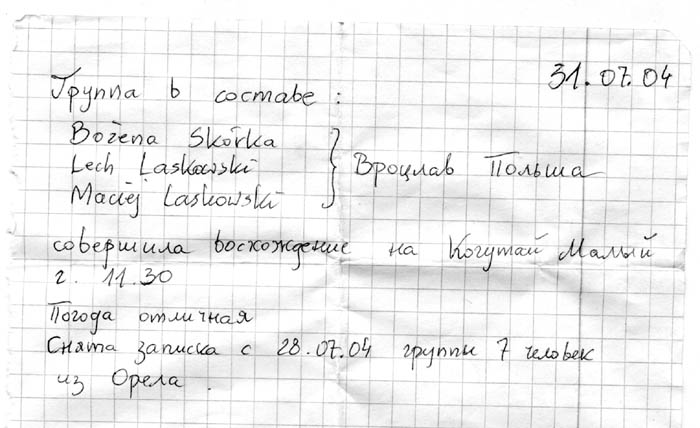 31.07.04
Группа в составе:
Bożena Skórka
Lech Laskowski } Вроцлав Польша
Maciej Laskowski
совершила восхождение на Когутай Малый
г. 11.30
Погода отличная
Снята записка с 28.07.04 группы 7 человек
из Орела.